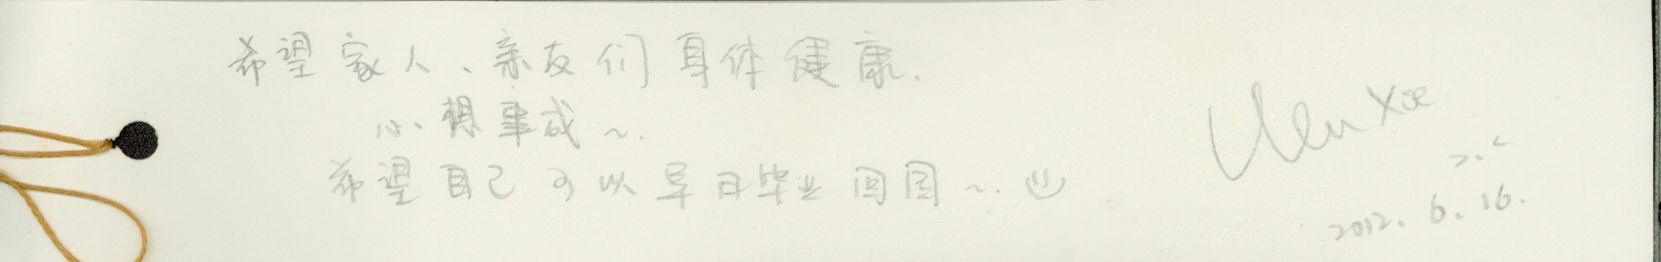 希望家人、亲友们身体健康.
心想事成~.
希望自己可以早日毕业回国~.
Xie
2012.6.16.